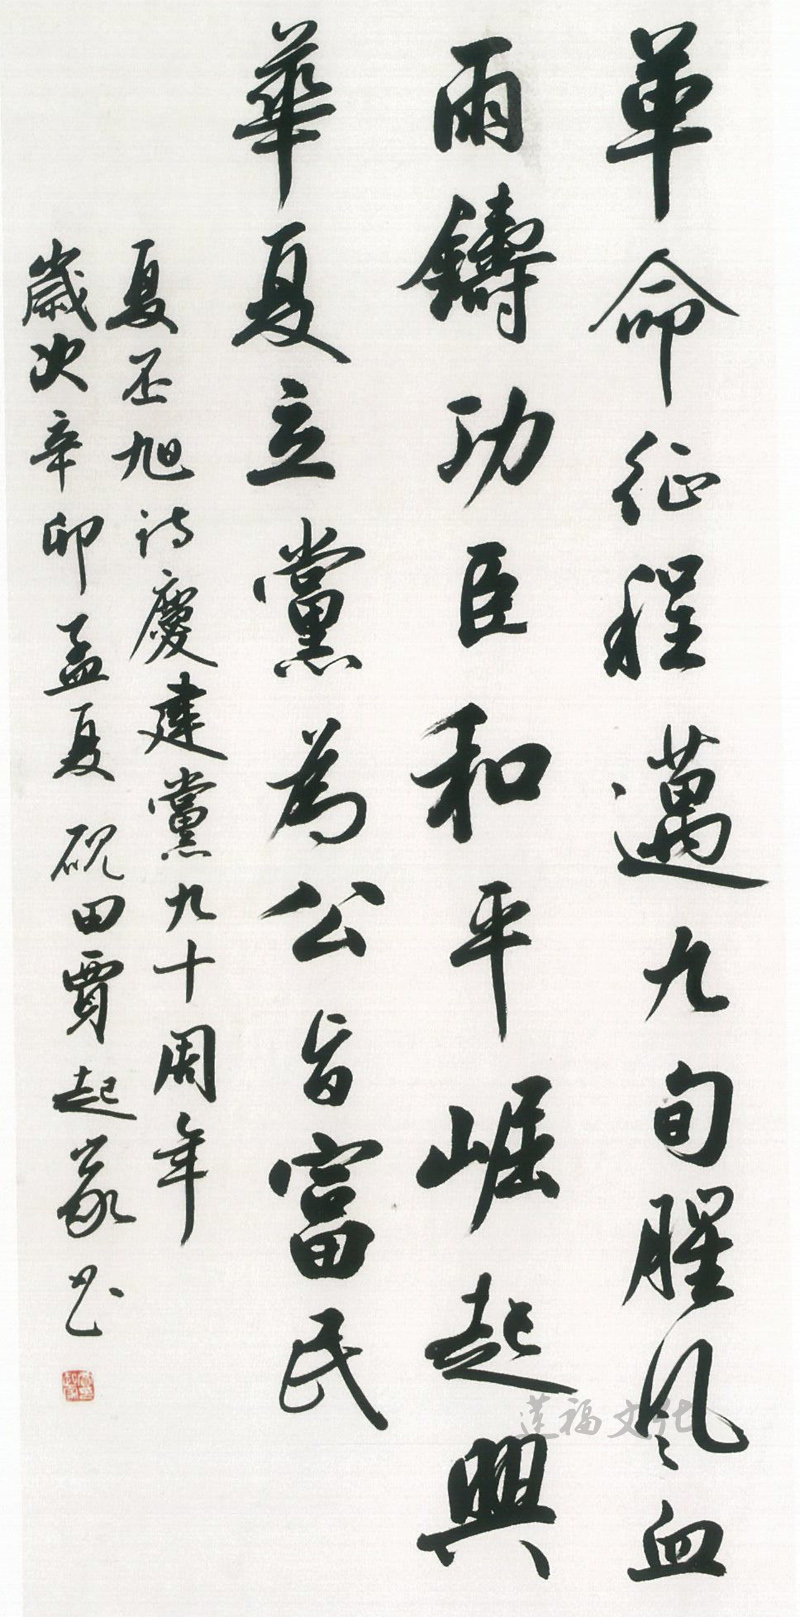 革命征程邁九旬腥风血
雨鑄功臣和平崛起興
華夏立黨為公旨富民
夏丕旭诗慶建黨九十周年
歲次辛卯孟夏 砚田賈起家书
莲福文化